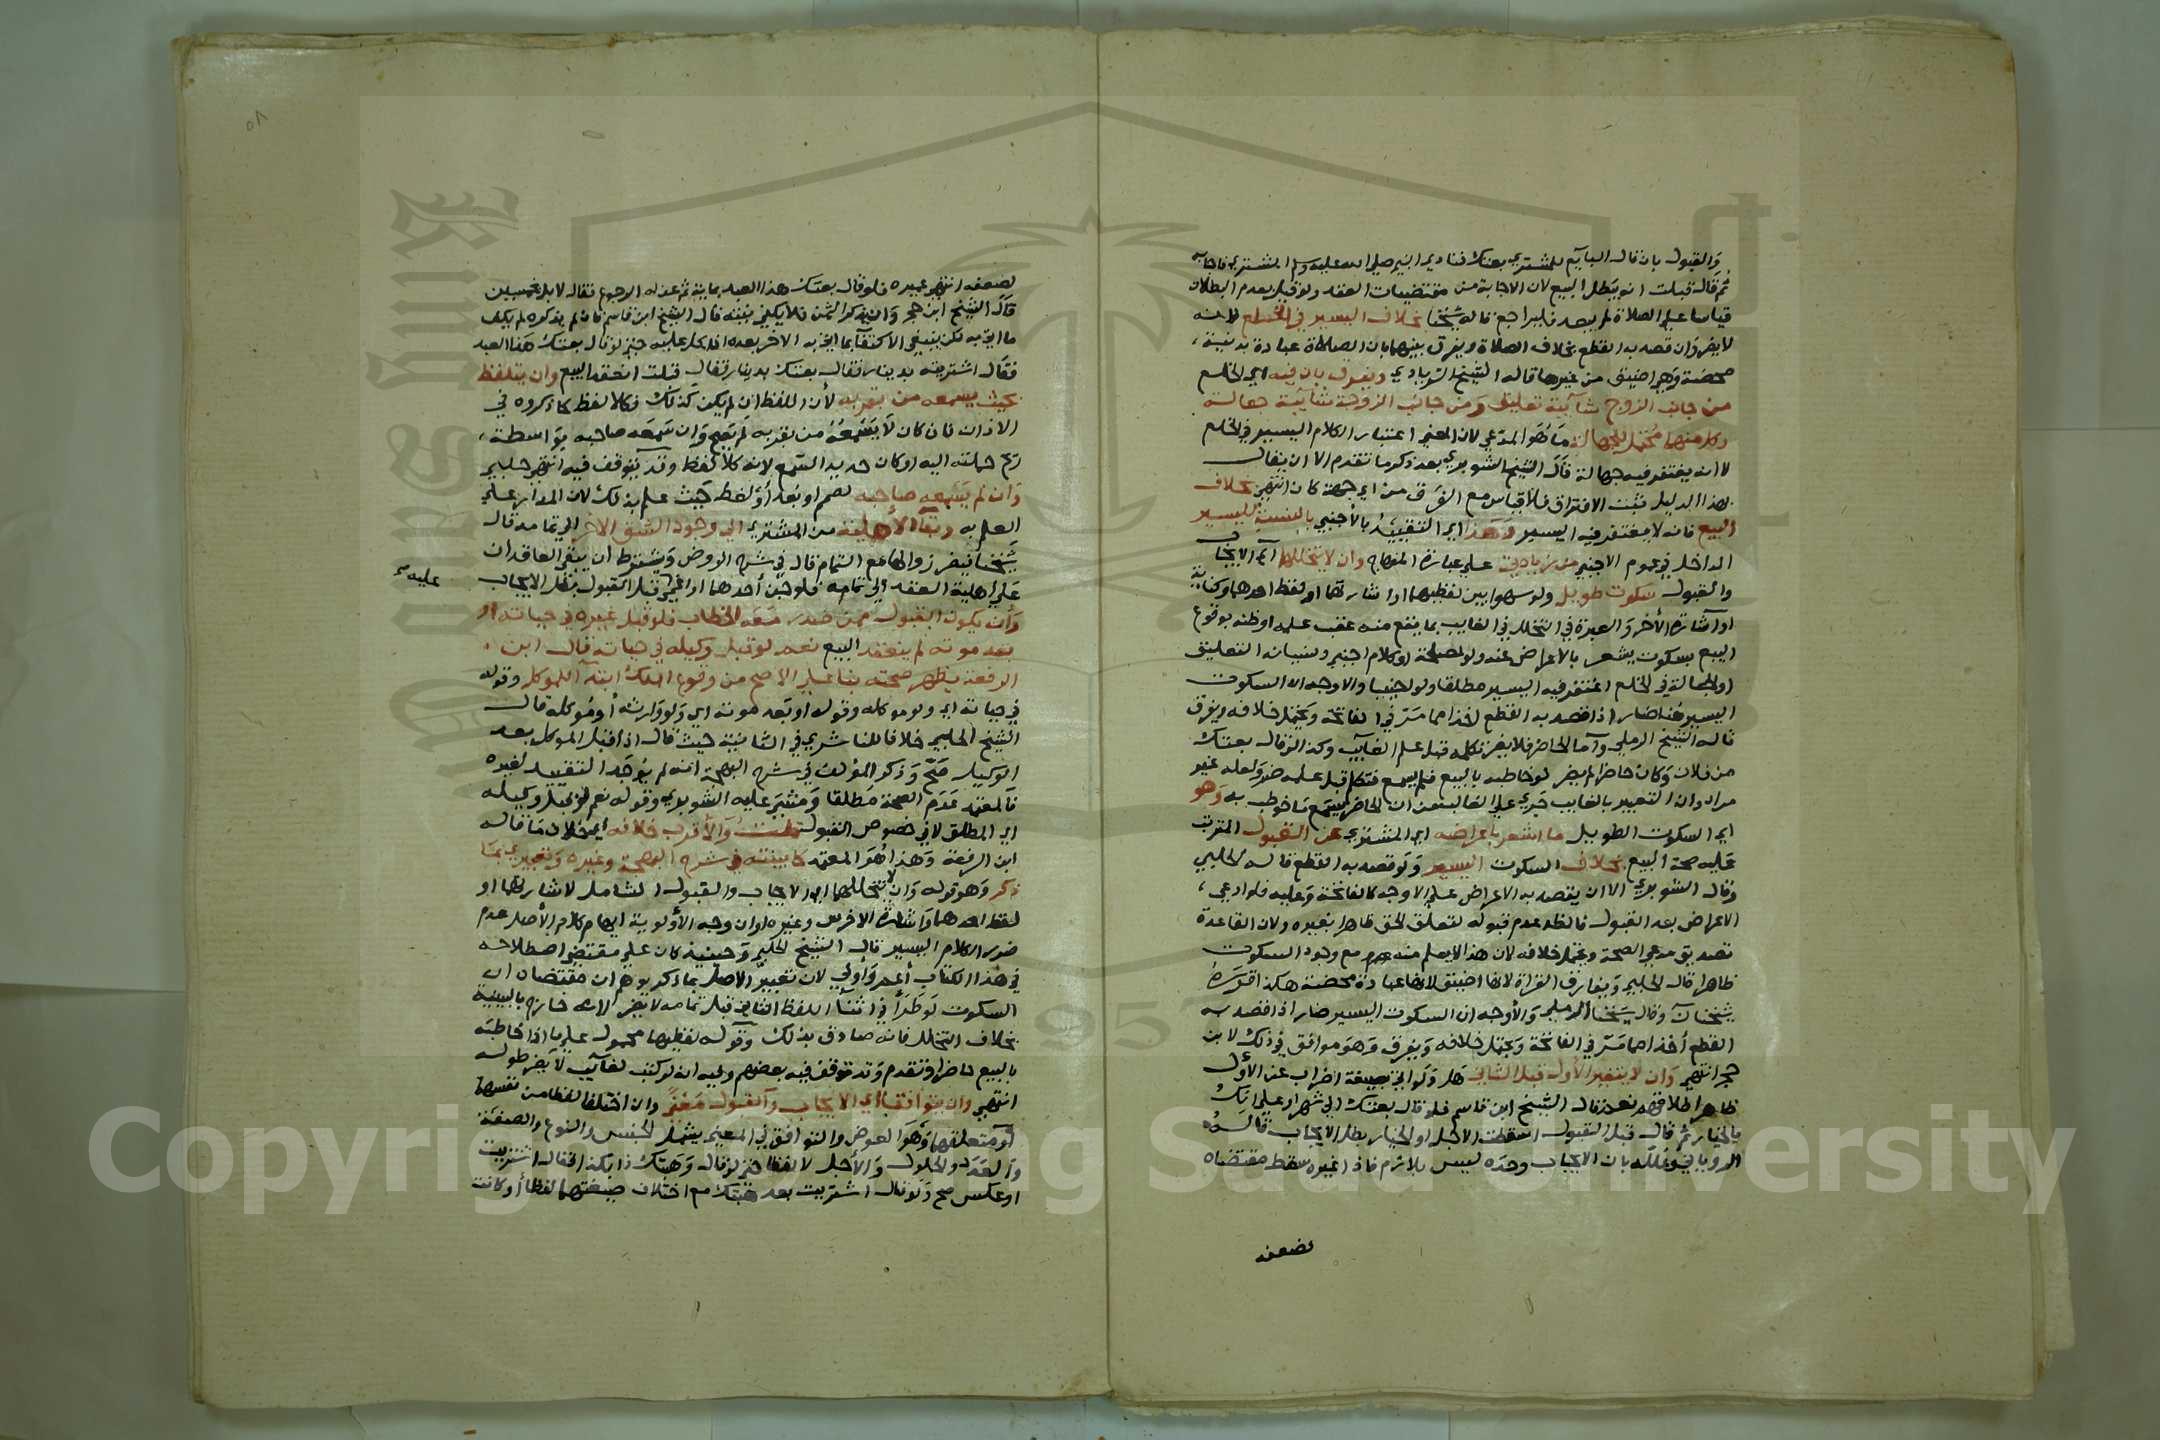 والقبول بان قال البايع للمشتري بعتك فنادي النبي صلي الله عليه وسلم المشتري فاجابه
ثم قال قبلت انه يبطل البيع لان الاجابة من مقتضيات العقد ولو قيل بعدم البطلان
قياسا علي الصلاة لم يبعد فليراجع قاله شيخنا بخلاف اليسير في الخلع لانه
لا يضر وان قصد به القطع بخلاف الصلاة ويفرق بينهما بان الصلاة عبادة بدنية
محضة وهي اضيق من غيرها قاله الشيخ الزيادي ويفرق بان فيه اي الخلع
من جانب الزوج شائبة تعليق ومن جانب الزوجة شائبة جعالة
وكل منهما محتمل للجهالة ما هو المدعي لان المعني اعتبار الكلام اليسير في الخلع
لا انه يغتفر فيه جهالة قال الشيخ الشوبري بعد ذكر ما تقدم الا ان يقال
بهذا الدليل ثبت الافتراق فلا قياس مع الفرق من اي جهة كان انتهي بخلاف
البيع فانه لا يغتفر فيه اليسير وهذا اي التقييد بالاجنبي بالنسبة لليسير
الداخل في عموم الاجنبي من زيادتي علي عبارة المنهاج وان لا يتخللهما اي الايجاب
والقبول سكوت طويل ولو سهوا بين لفظيهما او اشارتهما او لفظ احدهما وكتابة
او اشارة الاخر والعبرة في التخلل في الغايب بما يقع منه عقب علمه او ظنه بوقوع
البيع بسكوت يشعر بالاعراض عنه ولو لمصلحة او كلام اجنبي ولشبهات التعليق
او الجهالة في الخلع اغتفر فيه اليسير مطلقا ولو اجنبيا والاوجه ان السكوت
اليسير هنا ضار اذا قصد به القطع اخذا مما مر في الفاتحة ويحتمل خلافه ويفرق
قاله الشيخ الرملي واما الحاضر فلا يضر تكلمه قبل علم الغايب وكذا لو قال بعتك
من فلان وكان حاضرا لم يضر لو خاطبه بالبيع فلم يسمع فتكلم قبل علمه ضر ولعله غير
مراد وان التعبير بالغايب جري علي الغالب من ان الحاضر يسمع ما خوطب به وهو
اي السكوت الطويل ما اشعر باعراضه اي المشتري عن القبول المترتب
عليه صحة البيع بخلاف السكوت اليسير ولو قصد به القطع قاله الحلبي
وقال الشوبري الا ان يقصد به الاعراض علي الاوجه كالفاتحة وعليه فلو ادعي
الاعراض بعد القبول فالظاهر عدم قبوله لتعلق الحق ظاهرا بغيره ولان القاعدة
تصديق مدعي الصحة ويحتمل خلافه لان هذا لا يعلم منه جزم مع وجود السكوت
ظاهرا قال الحلبي ويفارق القراة لانها اضيق لانها عبادة محضة هكذا اقره
شيخنا وقال شيخنا الرملي والاوجه ان السكوت اليسير ضار اذا قصد به
القطع اخذا مما مر في الفاتحة ويحتمل خلافه ويفرق وهو موافق في ذلك لابن
حجر انتهي وان لا يتغير الاول قبل الثاني هل ولو اتي بصيغة اضراب عن الاول
ظاهر اطلاقهم نعم قال الشيخ ابن قاسم فلو قال بعتك الي شهر او علي انك
بالخيار ثم قال قبل القبول اسقطت الاجل او الخيار بطل الايجاب قاله
الروياني وعلله بان الايجاب وحده ليس بلازم فاذا غيره سقط مقتضاه
لضعفه
لضعفه انتهي عميره فلو قال بعتك هذا العبد بماية ثم عن له الرجوع فقال لا بل بخمسين
قال الشيخ ابن حجر وان يذكر الثمن فلا يكفي بنيته قال الشيخ ابن قاسم فان لم يذكره لم يكف
ما اتي به لكن ينبغي الاكتفا بما اتي به الاخر بعده اذا بكر عليه حتي لو قال بعتك هذا العبد
فقال اشتريته بدينار فقال بعتك بدينار فقال قبلت انعقد البيع وان يتلفظ
بحيث يسمعه من بقربه لان اللفظ ان لم يكن كذلك فكلا لفظ كما ذكروه في
الاذان فان كان لا يسمعه من بقربه لم يصح وان سمعه صاحبه بواسطة
ريح حملته اليه او كان حديد السمع لانه كلا لفظ وقد يتوقف فيه انتهي حلبي
وان لم يسمعه صاحبه لصمم او بعد او لغط حيث علم بذلك لان المدار علي
العلم به وبقا الاهلية من المشتري الي وجود الشق الاخر الي تمامه قال
شيخنا فيضر زوالها مع التمام قال في شرح الروض ويشترط ان يبقي العاقدان
علي اهلية العقد الي تمامه فلو جن احدهما او اغمي قبل القبول بطل الايجاب
عليه
وان يكون القبول ممن صدر معه الخطاب فلو قبل غيره في حياته او
بعد موته لم ينعقد البيع نعم لو قبل وكيله في حياته قال ابن
الرفعة يظهر صحته بنا علي الاصح من وقوع الملك ابتدا للموكل وقوله
في حياته اي ولو موكله وقوله او بعد موته اي ولو وارثه او موكله قال
الشيخ الحلبي خلافا للناشري في الثانية حيث قال اذا قبل الموكل بعد
الوكيل صح وذكر المؤلف في شرح البهجة انه لم يوجد التقييد لغيره
فالمعتمد عدم الصحة مطلقا ومشي عليه الشوبري وقوله نعم لو قبل وكيله
اي المطلق لا في خصوص القبول قلت والاقرب خلافه اي خلاف ما قاله
ابن الرفعة وهذا هو المعتمد كما بينته في شرح البهجة وغيره وتعبيري بما
ذكر وهو قوله وان لا يتخللهما اي الايجاب والقبول الشامل لاشارتهما او
لفظ احدهما واشارة الاخرس وغيره اولي وان وجه الاولوية ايهام كلام الاصل عدم
ضرر الكلام اليسير قال الشيخ الحلبي وحينئذ كان علي مقتضي اصطلاحه
في هذا الكتاب اعم واولي لان تعبير الاصل بما ذكر يوهم ان مقتضاه ان
السكوت لو طرا في اثنا اللفظ الثاني قبل تمامه لا يضر لانه خارج بالبينية
بخلاف التخلل فانه صادق بذلك وقوله لفظيهما محمول علي ما اذا خاطبه
بالبيع حاضرا وتقدم وقد توقف فيه بعضهم وفيه انه لو كتب لغايب لا يضر طوله
انتهي وان يتوافقا اي الايجاب والقبول معني وان اختلفا لفظا من نفسهما
او متعلقهما وهو العوض والتوافق في المعني يشمل الجنس والنوع والصفة
والعدد والحلول والاجل لا لفظا حتي لو قال وهبتك ذا بكذا فقال اشتريت
او عكس صح ولو قال اشتريت بعد هبتك مع اختلاف صيغتهما لفظا او كانت